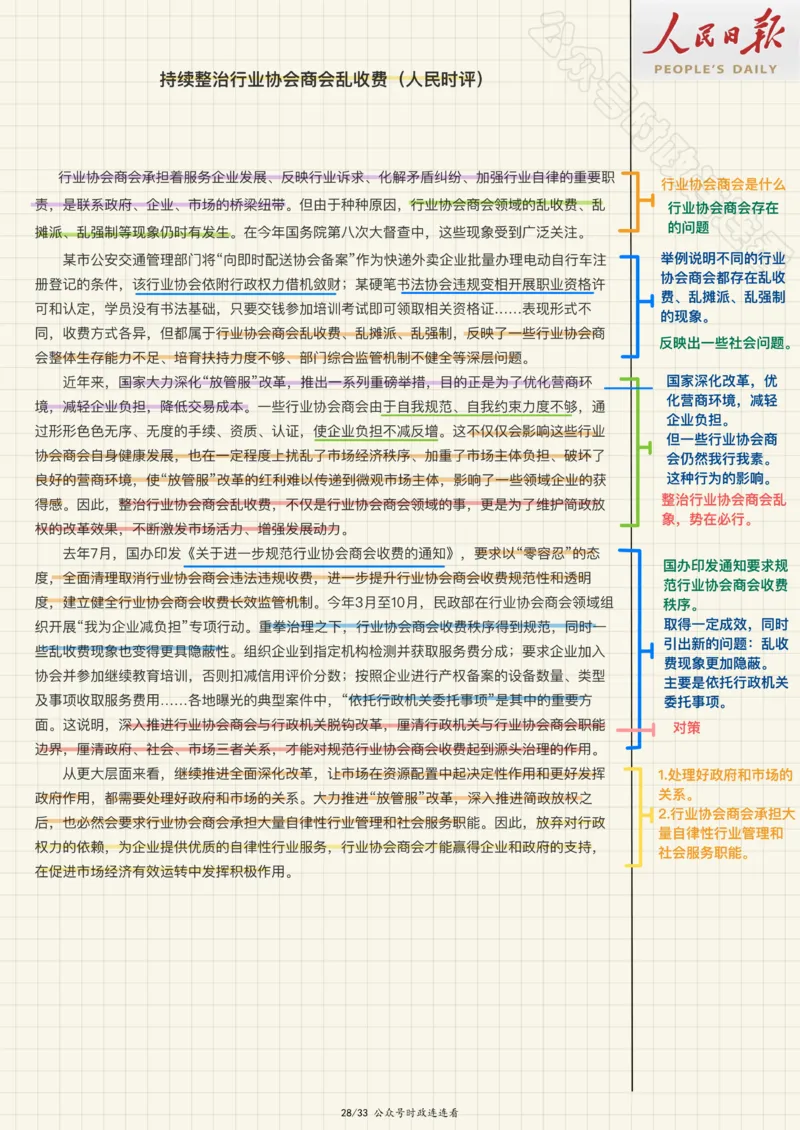 人民日报
PEOPLE'S DAILY
持续整治行业协会商会乱收费（人民时评）
行业协会商会承担着服务企业发展、反映行业诉求、化解矛盾纠纷、加强行业自律的重要职
责，是联系政府、企业、市场的桥梁纽带。但由于种种原因，行业协会商会领域的乱收费、乱
摊派、乱强制等现象仍时有发生。在今年国务院第八次大督查中，这些现象受到广泛关注。
某市公安交通管理部门将“向即时配送协会备案”作为快递外卖企业批量办理电动自行车注
册登记的条件，该行业协会依附行政权力借机敛财；某硬笔书法协会违规变相开展职业资格许
可和认定，学员没有书法基础，只要交钱参加培训考试即可领取相关资格证……表现形式不
同，收费方式各异，但都属于行业协会商会乱收费、乱摊派、乱强制，反映了一些行业协会商
会整体生存能力不足、培育扶持力度不够、部门综合监管机制不健全等深层问题。
近年来，国家大力深化“放管服”改革，推出一系列重磅举措，目的正是为了优化营商环
境，减轻企业负担，降低交易成本。一些行业协会商会由于自我规范、自我约束力度不够，通
过形形色色无序、无度的手续、资质、认证，使企业负担不减反增。这不仅仅会影响这些行业
协会商会自身健康发展，也在一定程度上扰乱了市场经济秩序、加重了市场主体负担、破坏了
良好的营商环境，使“放管服”改革的红利难以传递到微观市场主体，影响了一些领域企业的获
得感。因此，整治行业协会商会乱收费，不仅是行业协会商会领域的事，更是为了维护简政放
权的改革效果，不断激发市场活力、增强发展动力。
去年7月，国办印发《关于进一步规范行业协会商会收费的通知》，要求以“零容忍”的态
度，全面清理取消行业协会商会违法违规收费，进一步提升行业协会商会收费规范性和透明
度，建立健全行业协会商会收费长效监管机制。今年3月至10月，民政部在行业协会商会领域组
织开展“我为企业减负担”专项行动。重拳治理之下，行业协会商会收费秩序得到规范，同时一
些乱收费现象也变得更具隐蔽性。组织企业到指定机构检测并获取服务费分成；要求企业加入
协会并参加继续教育培训，否则扣减信用评价分数；按照企业进行产权备案的设备数量、类型
及事项收取服务费用……各地曝光的典型案件中，“依托行政机关委托事项”是其中的重要方
面。这说明，深入推进行业协会商会与行政机关脱钩改革，厘清行政机关与行业协会商会职能
边界，厘清政府、社会、市场三者关系，才能对规范行业协会商会收费起到源头治理的作用。
从更大层面来看，继续推进全面深化改革，让市场在资源配置中起决定性作用和更好发挥
政府作用，都需要处理好政府和市场的关系。大力推进“放管服”改革，深入推进简政放权之
后，也必然会要求行业协会商会承担大量自律性行业管理和社会服务职能。因此，放弃对行政
权力的依赖，为企业提供优质的自律性行业服务，行业协会商会才能赢得企业和政府的支持，
在促进市场经济有效运转中发挥积极作用。
行业协会商会是什么
行业协会商会存在
的问题
举例说明不同的行业
协会商会都存在乱收
费、乱摊派、乱强制
的现象。
反映出一些社会问题。
国家深化改革，优
化营商环境，减轻
企业负担。
但一些行业协会商
会仍然我行我素。
这种行为的影响。
整治行业协会商会乱
象，势在必行。
国办印发通知要求规
范行业协会商会收费
秩序。
取得一定成效，同时
引出新的问题：乱收
费现象更加隐蔽。
主要是依托行政机关
委托事项。
对策
1.处理好政府和市场的
关系。
2.行业协会商会承担大
量自律性行业管理和
社会服务职能。
28/33 公众号时政连连看